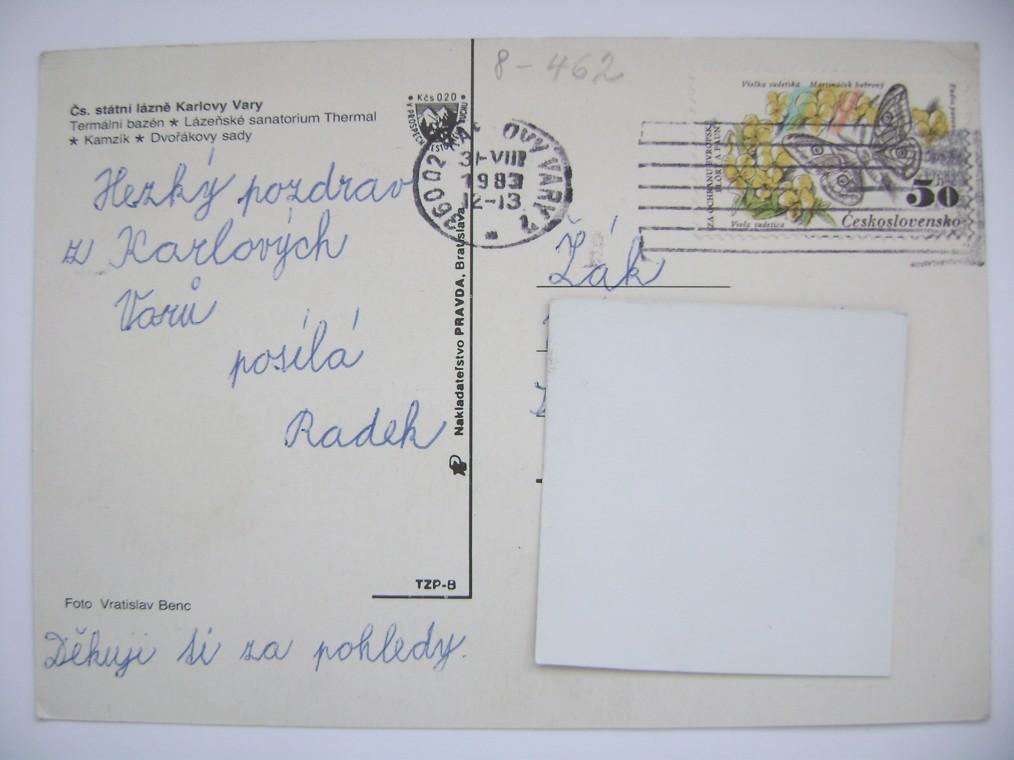 8-462
Čs. státní lázně Karlovy Vary
Termální bazén ★ Lázeňské sanatorium Thermal
★ Kamzík ★ Dvořákovy sady
Kčs 020
Hezký pozdrav
z Karlových
Varů
posílá
Radek
Děkuji ti za pohledy.
Foto Vratislav Benc
TZP-B
Nakladateľstvo PRAVDA, Bratislava
360 02 KARLOVY VARY 2
31-VIII
1983
12-13
Violka sudetská Martináček habrový
ZA OCHRANU EVROPSKÉ
FLÓRY A FAUNY
50
Československo
Viola sudetica
Žák